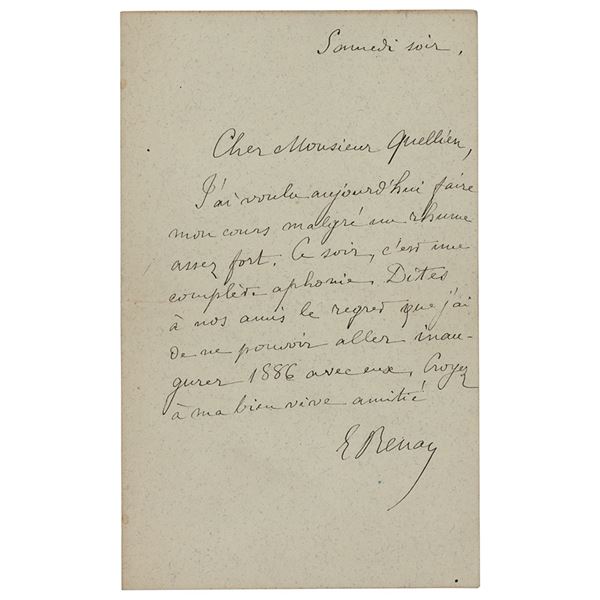 Samedi soir,
Cher Monsieur Quellien,
J'ai voulu aujourd'hui faire
mon cours malgré un rhume
assez fort. Ce soir, c'est une
complète aphonie. Dites
à nos amis le regret que j'ai
de ne pouvoir aller inau-
gurer 1886 avec eux. Croyez
à ma bien vive amitié
E Renan